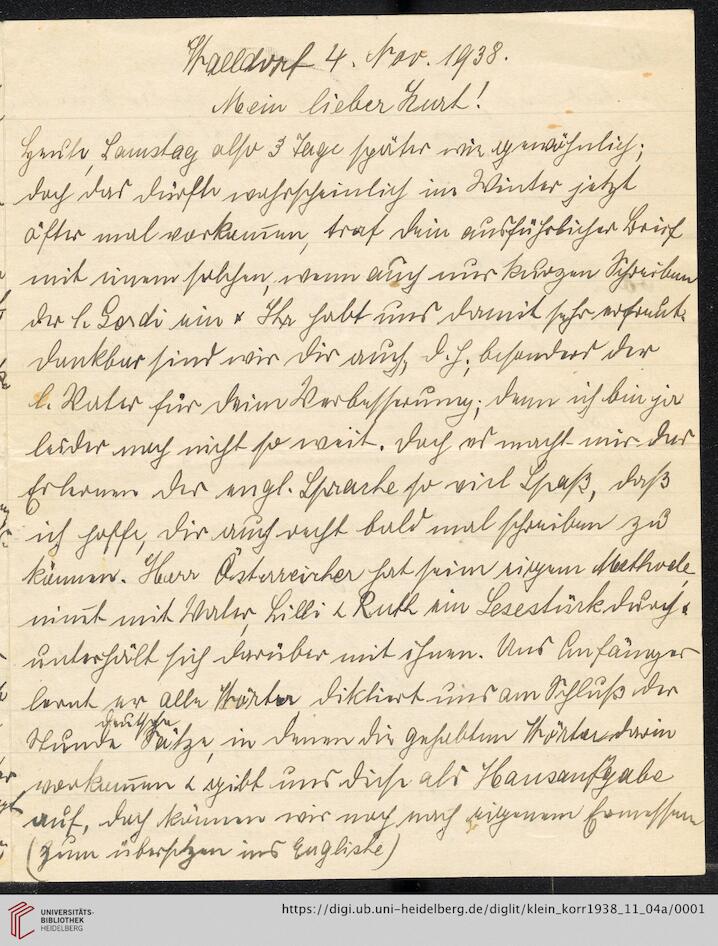 Walldorf 4. Nov. 1938.
Mein lieber Kurt!
Heute, Samstag also 3 Tage später wie gewöhnlich;
doch das dürfte wahrscheinlich im Winter jetzt
öfter mal vorkom̄en, traf dein ausführlicher Brief
mit einem solchen, wenn auch nur kurzen Schreiben
der l. Gerdi ein & Ihr habt uns damit sehr erfreut.
Dankbar sind wir dir auch, d.h. besonders der
l. Vater für deine Verbesserung; denn ich bin ja
leider noch nicht so weit. Doch es macht mir das
Erlernen der engl. Sprache so viel Spaß, daß
ich hoffe, dir auch recht bald mal schreiben zu
können. Herr Österreicher hat seine eigene Methode,
nim̄t mit Vater, Lilli & Ruth ein Lesestück durch &
unterhält sich darüber mit ihnen. Uns Anfänger
lernt er alle Wörter diktiert uns am Schluß der
Stunde deutsche Sätze, in denen die gehabten Wörter darin
vorkom̄en & gibt uns diese als Hausaufgabe
auf, doch können wir noch nach eigenem Ermessen
(zum übersetzen ins Englische)
UNIVERSITÄTS-
BIBLIOTHEK
HEIDELBERG
https://digi.ub.uni-heidelberg.de/diglit/klein_korr1938_11_04a/0001